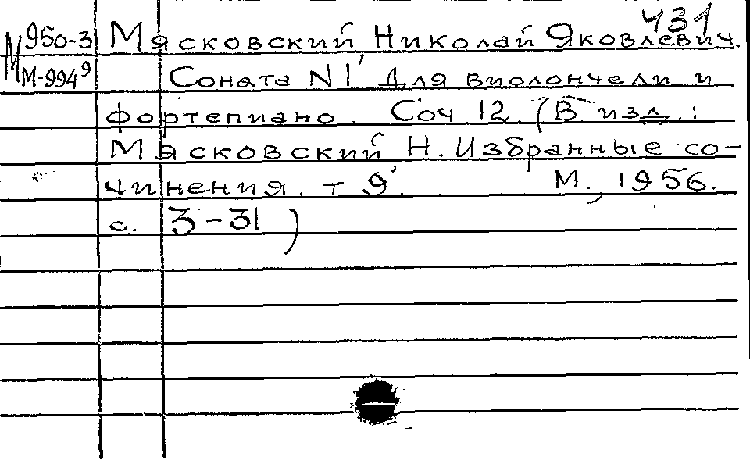 431
М 950-3 Мясковский Николай Яковлевич.
М-994⁹ Соната N1 для виолончели и
фортепиано. Соч 12. (В изд.:
Мясковский Н. Избранные со-
чинения. т 9. М., 1956.
с. 3-31)